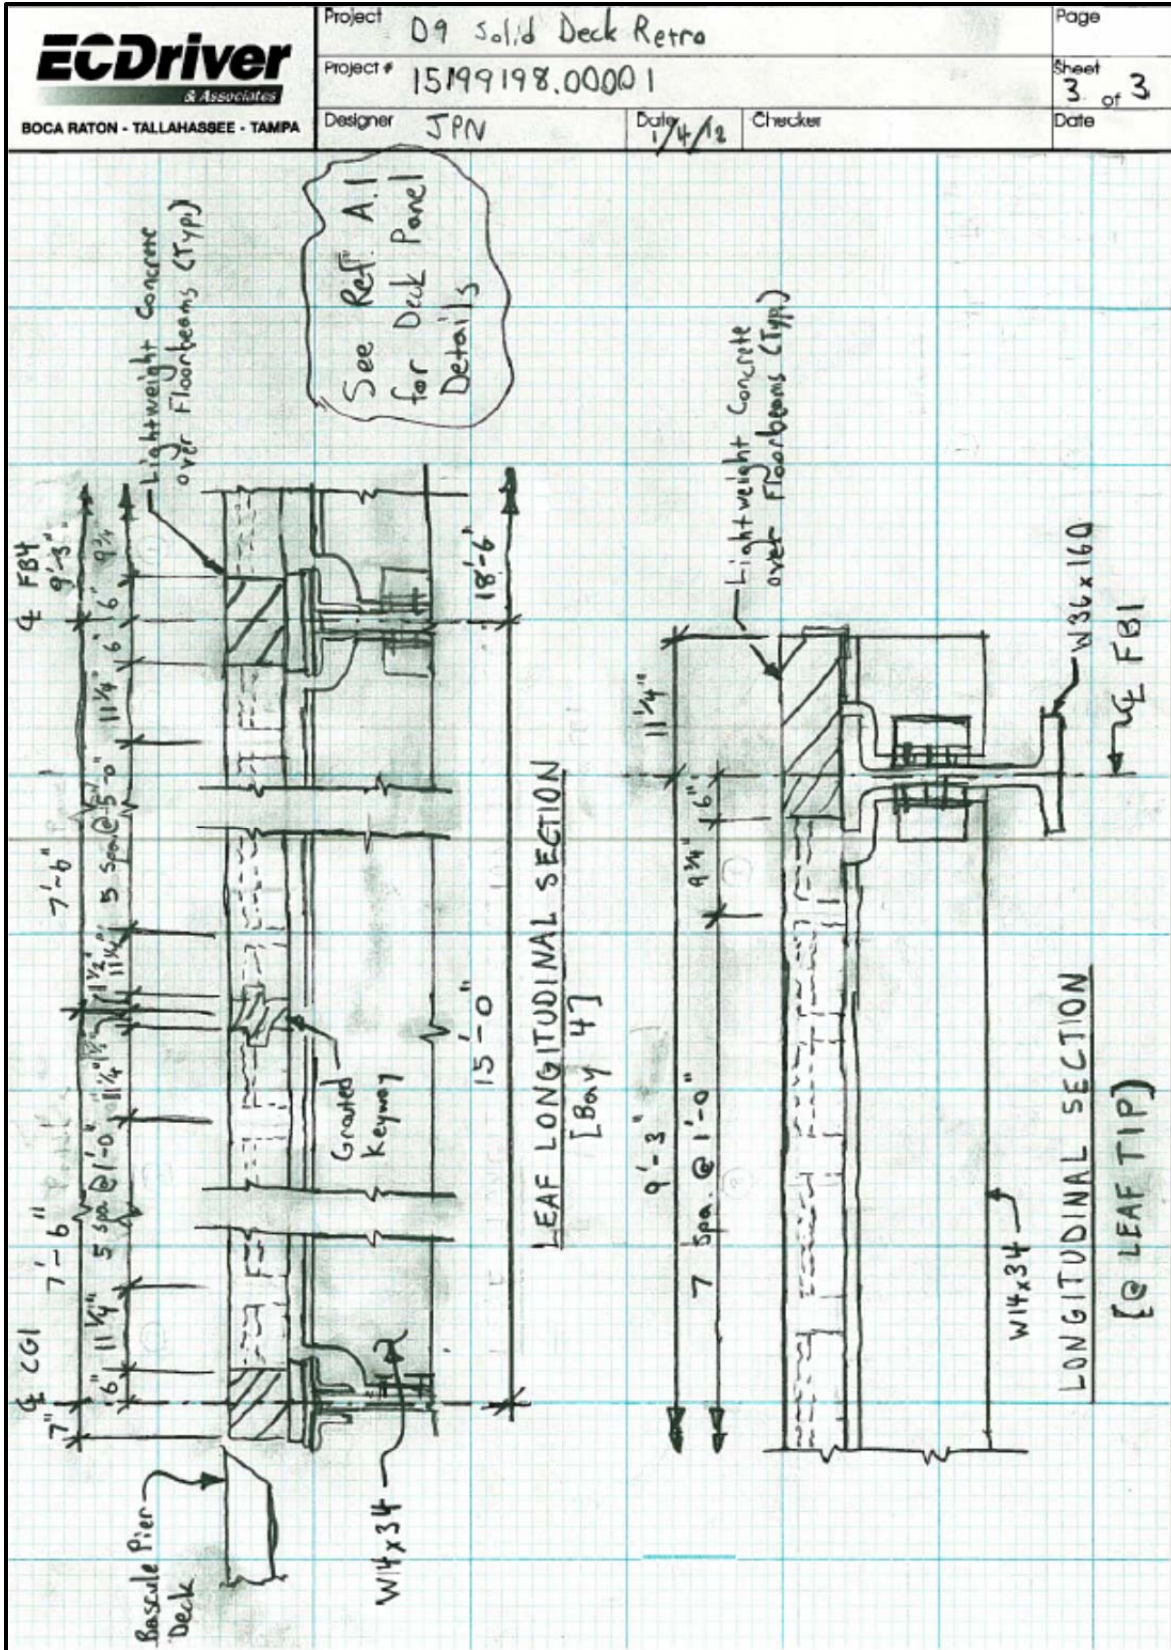 ECDriver
& Associates
BOCA RATON - TALLAHASSEE - TAMPA
Project D9 Solid Deck Retro
Project # 15199198.00001
Designer JPN
Date 1/4/12
Checker
Page
Sheet 3 of 3
Date
See Ref. A.1
for Deck Panel
Details
Lightweight Concrete
over Floorbeams (Typ.)
℄ CG1
℄ FB4
7'-6"
7'-6"
9'-3"
7"
6"
11 1/4"
5 spa @ 1'-0"
11 1/4"
1 1/2"
1 1/2"
11 1/4"
5 spa @ 5'-0"
11 1/4"
6"
6"
9 3/4"
Bascule Pier
Deck
Grouted
Keyway
W14x34
15'-0"
18'-6"
LEAF LONGITUDINAL SECTION
[Bay 4]
Lightweight Concrete
over Floorbeams (Typ.)
9'-3"
11 1/4"
7 spa. @ 1'-0"
9 3/4"
6"
W14x34
W36x160
℄ FB1
LONGITUDINAL SECTION
[@ LEAF TIP]